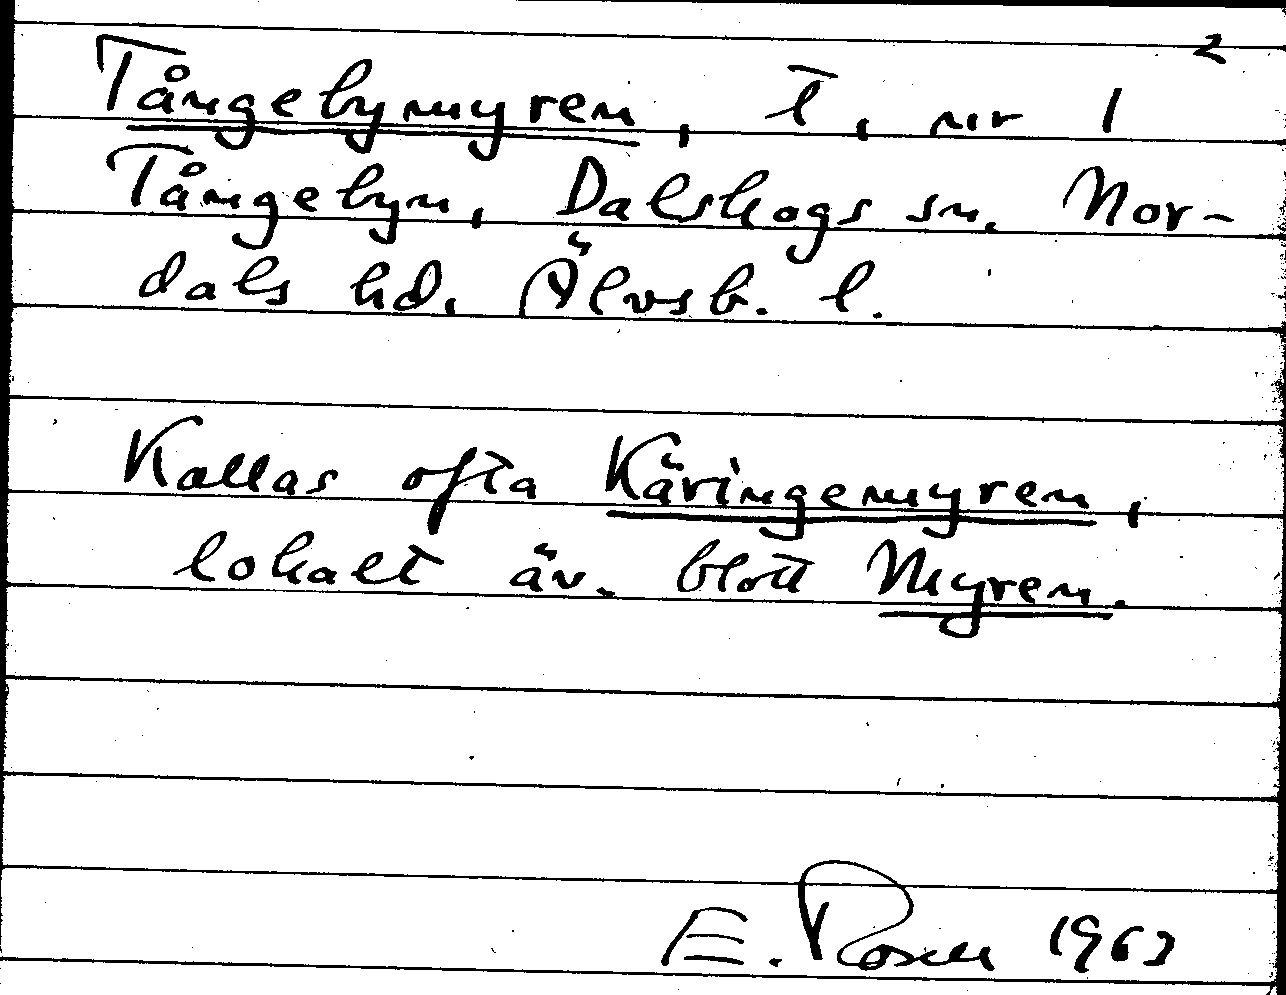 2
Tångebymyren, T, nr 1
Tångebyn, Dalskogs sn. Nor-
dals hd. Älvsb. l.
Kallas ofta Käringemyren,
lokalt äv. blott Myren.
E. Rosell 1963